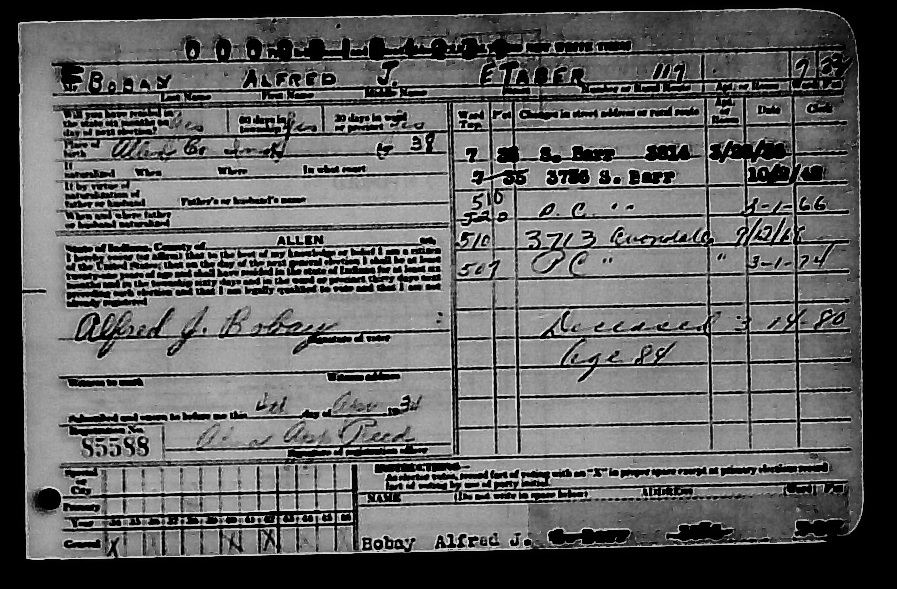 BOBAY ALFRED J. E TABER 117
Last Name First Name Middle Name Street Number or Rural Route Apt. or Room Ward Pct.
Will you have resided in
day of next election? Yes 60 days in township? Yes 30 days in ward or precinct Yes
Ward Twp. Pct. Changes in street address or rural route Apt. or Room Date Clerk
Place of birth Allen Co. 38
If naturalized When Where In what court
If by virtue of naturalization of father or husband Father's or husband's name
When and where father or husband naturalized
7 35 S. Barr 3814
7 35 3736 S. Barr
510
520 P. C. " 66
510 3713 Avondale 9/12/68
507 P C " " 3-1-74
Deceased 3 14-80
Age 84
State of Indiana, County of ALLEN ss.
I hereby swear (or affirm) that to the best of my knowledge or belief I am a citizen
of the United States; that on the day of the next general election I shall be at least
twenty-one years of age and shall have resided in the state of Indiana for at least six
months and in the township sixty days and in the ward or precinct thirty days next
preceding such election and that I am legally qualified to vote and that I am not
already registered
Alfred J. Bobay
Signature of voter
Witness to mark Witness address
Subscribed and sworn to before me this day of 1934
Registration No.
85588 Reed
Signature of registration officer
Special or City
Primary
Year 34 35 36 37 38 39 40 41 42 43 44 45 46
General X X X
NAME (Do not write in space below) ADDRESS Ward Pct.
Bobay Alfred J. S. Barr